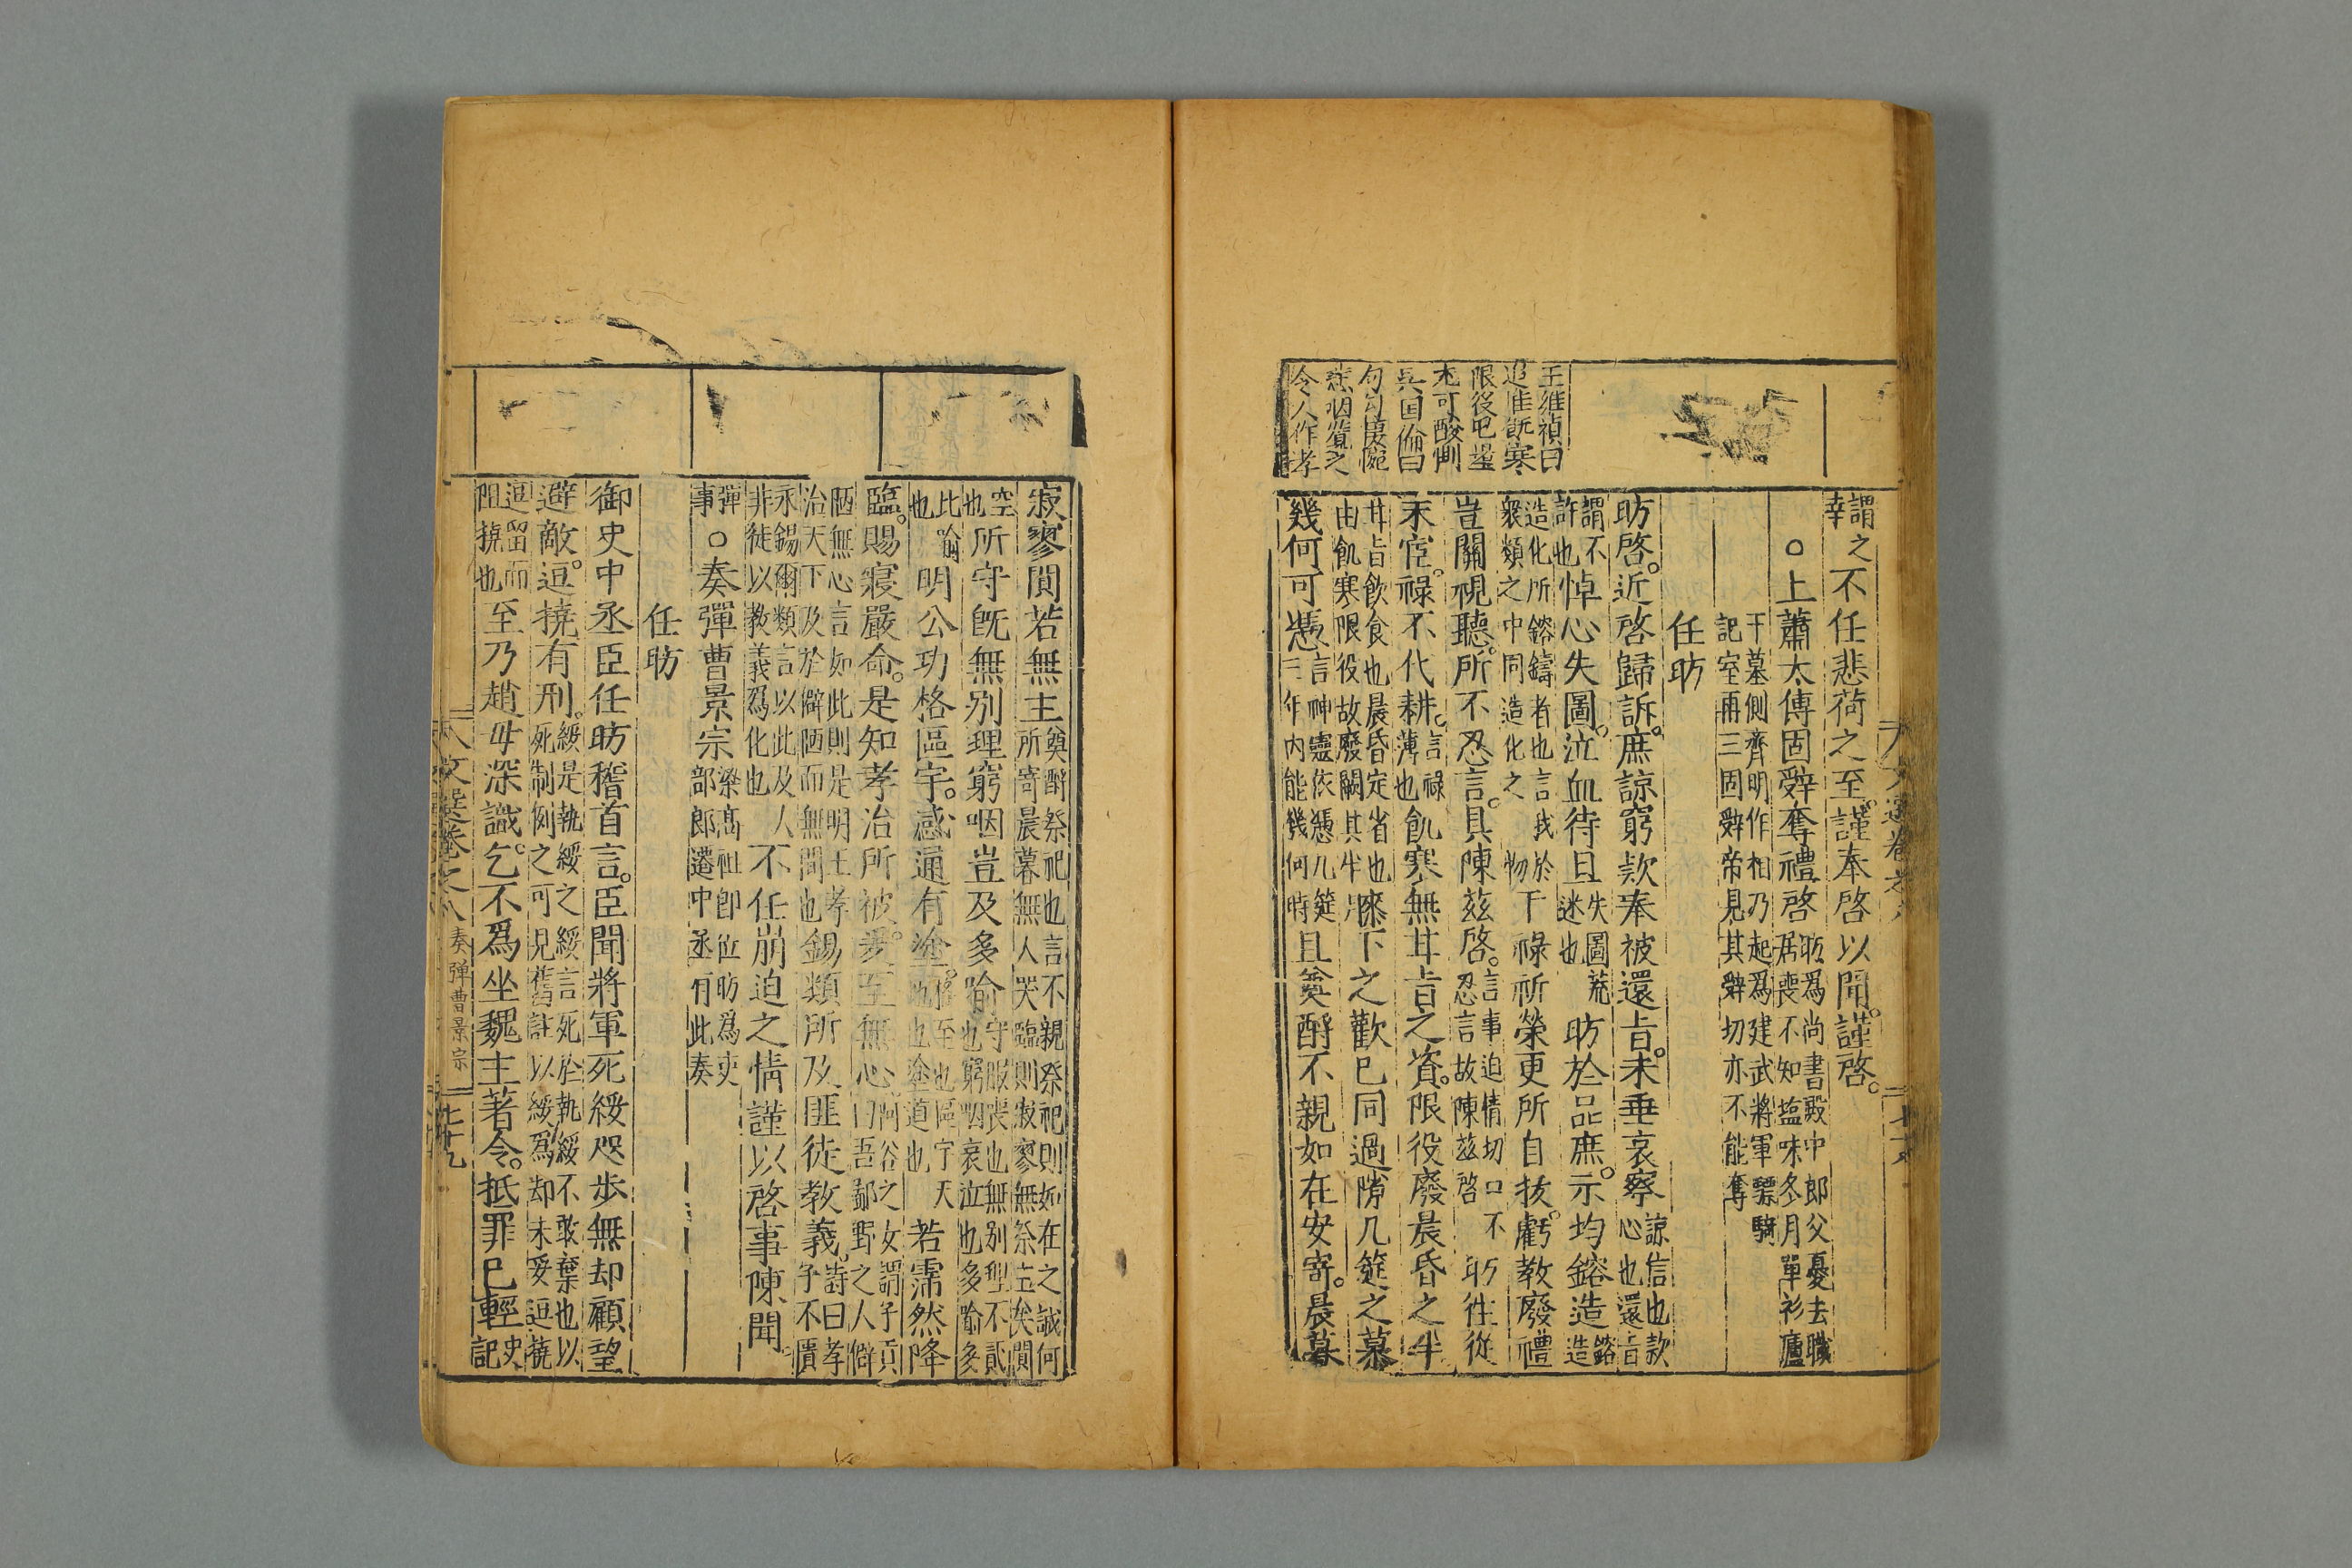 謂之
幸
不任悲荷之至。謹奉啓以聞。謹啓。
○上蕭太傅固辭奪禮啓
昉爲尚書殿中郎父憂去職
居喪不知塩味冬月單衫廬
于墓側齊明作相乃起爲建武將軍驃騎
記室再三固辭帝見其辭切亦不能奪
任昉
昉啓。近啓歸訴。庶諒窮欵奉被還旨。未垂哀察
諒信也欵
心也還旨
謂不
許也
悼心失圖。泣血待旦
失圖荒
迷也
昉於品庶。示均鎔造
鎔
造
造化所鎔鑄者也言我於
衆類之中同造化之物
干祿祈榮更所自拔。虧教廢禮
豈關視聽。所不忍言。具陳茲啓。
言事迫情切口不
忍言故陳茲啓
昉往從
末宦。祿不代耕。
言祿
薄也
飢寒無甘旨之資。限役廢晨昏之半
甘旨飲食也晨昏定省也
由飢寒限役故廢闕其半
膝下之歡已同過隙几筵之慕
幾何可憑
言神靈依憑几筵
三年內能幾何時
且奠酹不親如在安寄。晨暮
王維禎曰
追惟飢寒
限役吧望
不可酸惻
吳国倫曰
句句悽惋
悲咽讀之
令人作孝
寂寥閴若無主
奠酹祭祀也言不親祭祀則如在之誠何
所寄晨暮無人哭臨則寂寥無祭主矣閴
空
也
所守旣無别理窮咽豈及多喻
守服喪也無别理不貳
也窮咽哀泣也多喻多
比喻
也
明公功格區宇。感通有塗。
格至也區宇天
地也塗道也
若霈然降
臨。賜寢嚴命。是知孝治所被。爰至無心
阿谷之女謂子貢
曰吾鄙野之人僻
陋無心言如此則是明王孝
治天下及於僻陋而無間也
錫類所及匪徒教義。
詩曰孝
子不匱
永錫爾類言以此及人
非徒以教義爲化也
不任崩迫之情謹以啓事陳聞。
彈
事
○奏彈曹景宗
梁髙祖即位昉爲吏
部郎遷中丞有此奏
任昉
御史中丞臣任昉稽首言。臣聞將軍死綏咫步無却顧望
避敵。逗撓有刑。
綏是執綏之綏言死於執綏不敢棄也以
死制例之可見舊註以綏爲却未妥逗撓
逗留而
阻撓也
至乃趙母深識。乞不爲坐魏主著令。抵罪已輕
史
記
文選卷之八
奏彈曹景宗
七十九